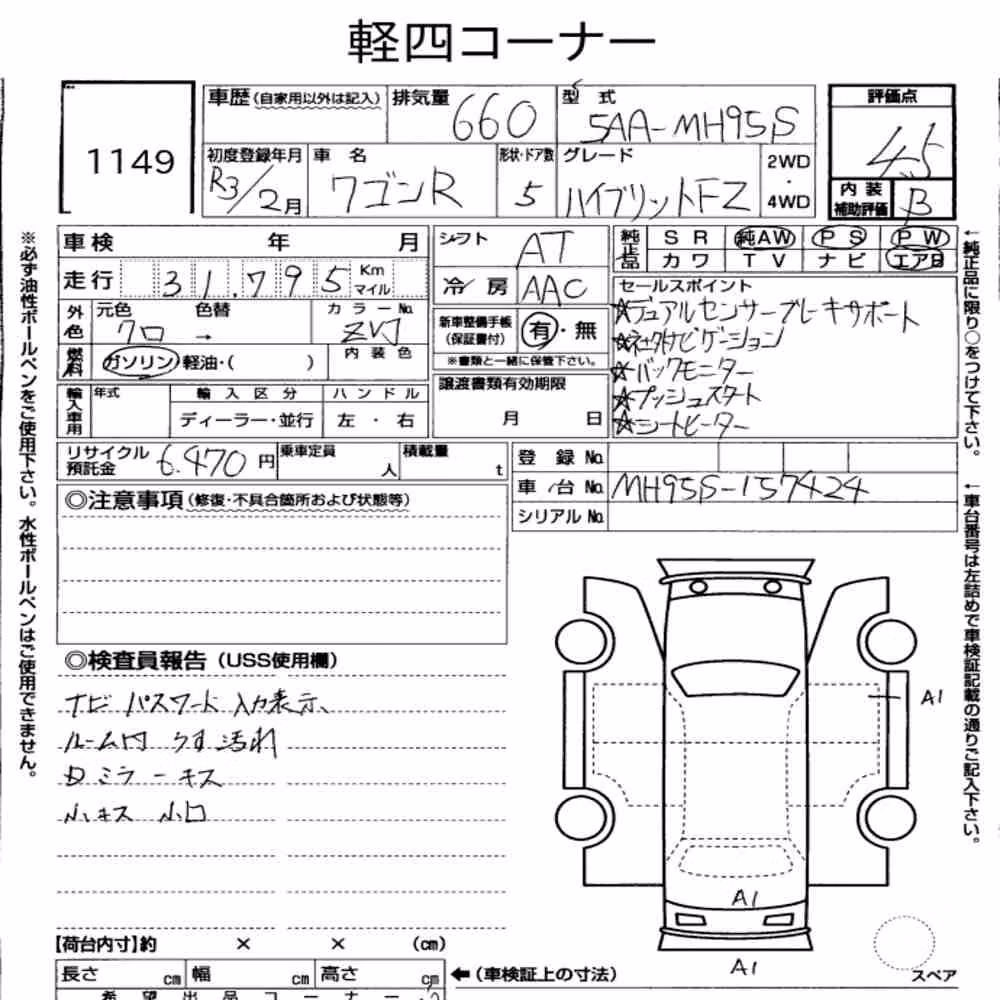 軽四コーナー
1149
車歴 (自家用以外は記入) 排気量 660 型 式 5AA-MH95S
評価点 4.5
初度登録年月 R3/2月 車 名 ワゴンR 形状・ドア数 5 グレード ハイブリットFZ 2WD・4WD
内装補助評価 B
車検 年 月
シフト AT
純正品 SR 純AW PS PW
カワ TV ナビ エアB
走行 31,795 Km マイル
冷房 AAC
外色 元色 クロ → 色替 カラーNo. ZVJ
新車整備手帳(保証書付) 有・無
※書類と一緒に保管下さい。
セールスポイント
☆デュアルセンサーブレーキサポート
☆社外ナビゲーション
☆バックモニター
☆プッシュスタート
☆シートヒーター
燃料 ガソリン 軽油・( ) 内装色
譲渡書類有効期限 月 日
輸入車用 年式 輸入区分 ハンドル
ディーラー・並行 左・右
リサイクル預託金 6.470円 乗車定員 人 積載量 t
登録No.
車台No. MH95S-157424
シリアルNo.
◎注意事項(修復・不具合箇所および状態等)
◎検査員報告(USS使用欄)
ナビ パスワード 入力表示、
ルーム内 うす汚れ
Dミラーキズ
小キズ 小凹
A1
A1
A1
スペア
【荷台内寸】約 × × (cm)
長さ cm 幅 cm 高さ cm
←(車検証上の寸法)
希望出品コーナー
※必ず油性ボールペンをご使用下さい。水性ボールペンはご使用できません。
←純正品に限り○をつけて下さい。
←車台番号は左詰めで車検証記載の通りご記入下さい。